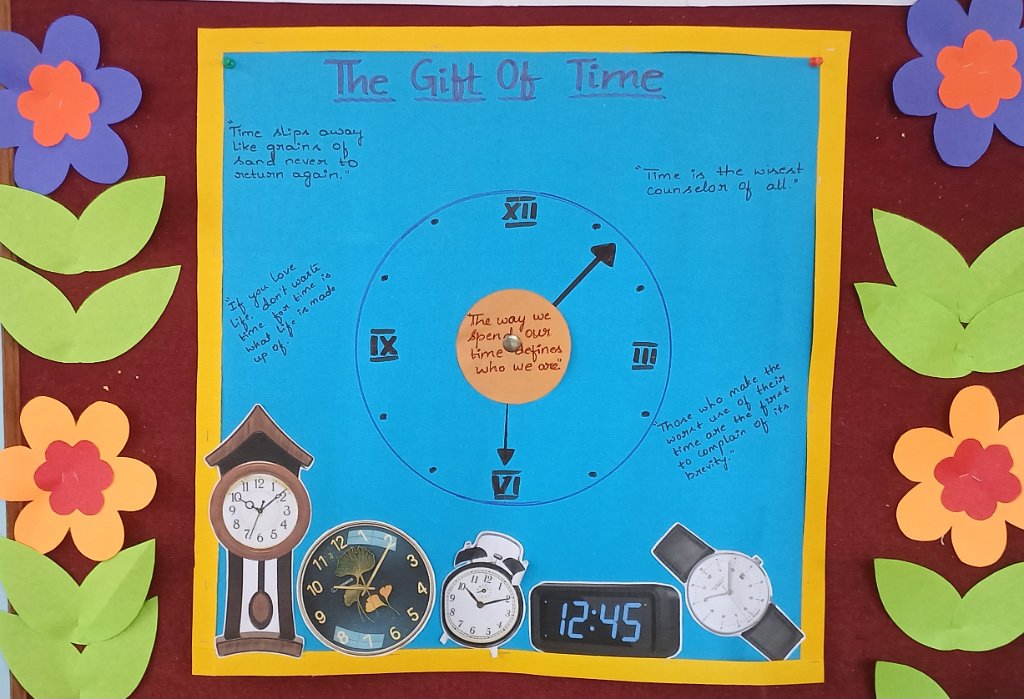 The Gift Of Time
"Time slips away
like grains of
sand never to
return again."
"Time is the wisest
counselor of all."
"If you love
life, don't waste
time, for time is
what life is made
up of."
XII
IX
III
VI
"The way we
spend our
time defines
who we are"
"Those who make the
worst use of their
time are the first
to complain of its
brevity."
12:45